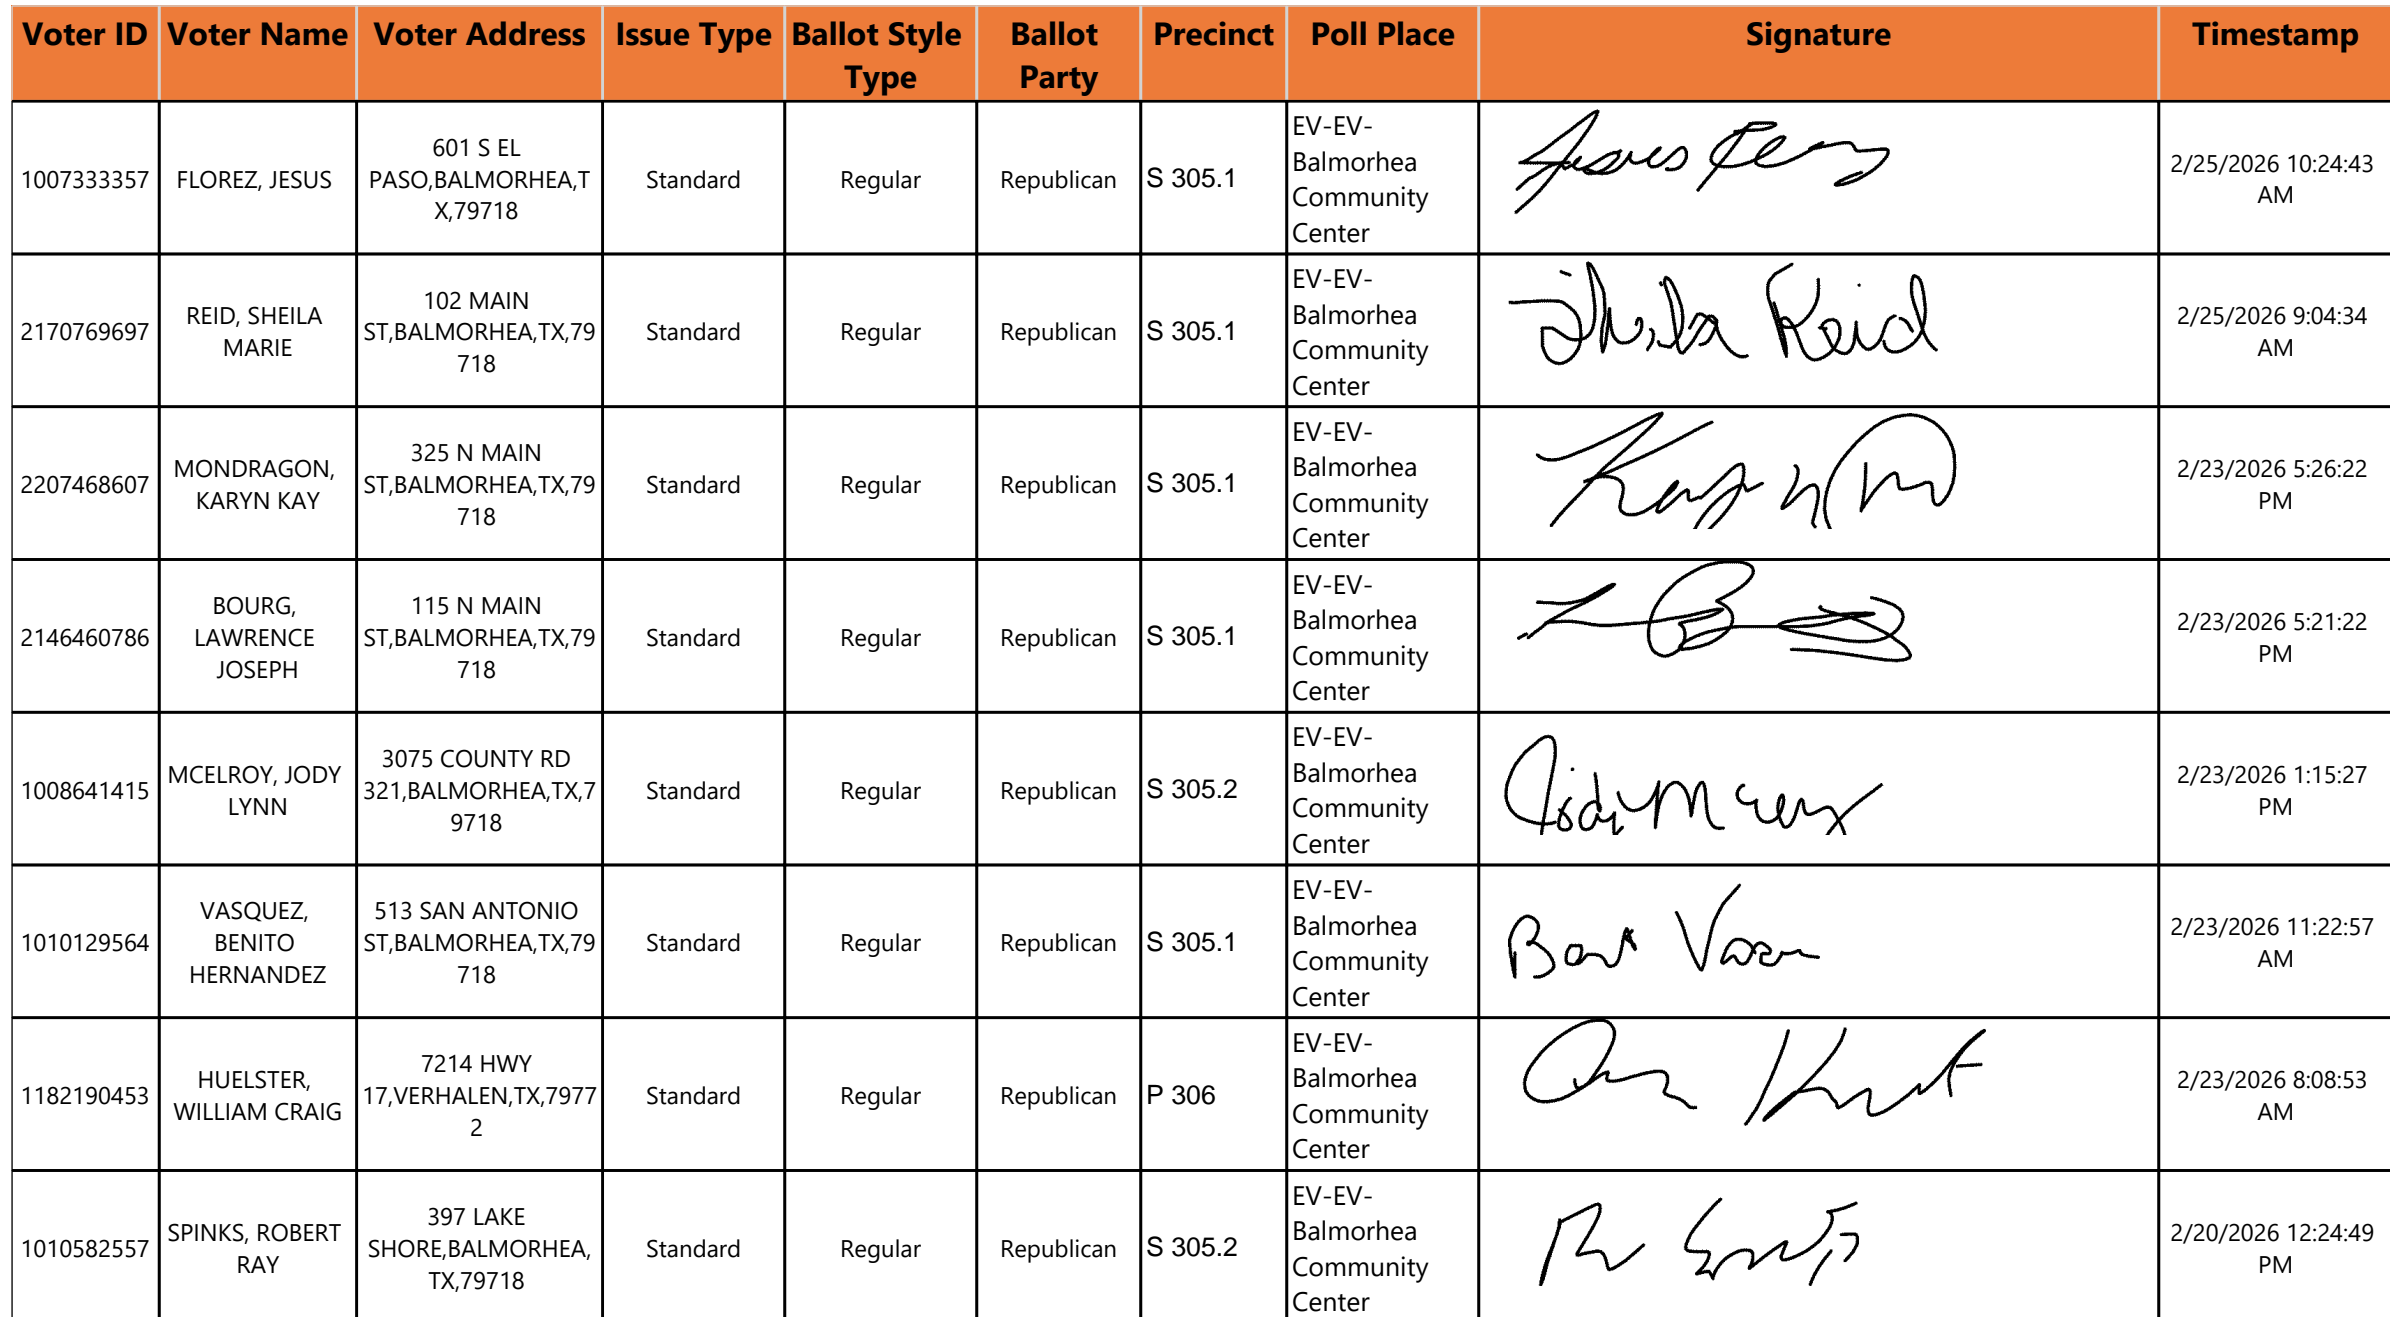 Voter ID Voter Name Voter Address Issue Type Ballot Style Type Ballot Party Precinct Poll Place Signature Timestamp
1007333357 FLOREZ, JESUS 601 S EL PASO,BALMORHEA,TX,79718 Standard Regular Republican S 305.1 EV-EV-Balmorhea Community Center Jesus 2/25/2026 10:24:43 AM
2170769697 REID, SHEILA MARIE 102 MAIN ST,BALMORHEA,TX,79718 Standard Regular Republican S 305.1 EV-EV-Balmorhea Community Center Sheila Reid 2/25/2026 9:04:34 AM
2207468607 MONDRAGON, KARYN KAY 325 N MAIN ST,BALMORHEA,TX,79718 Standard Regular Republican S 305.1 EV-EV-Balmorhea Community Center 2/23/2026 5:26:22 PM
2146460786 BOURG, LAWRENCE JOSEPH 115 N MAIN ST,BALMORHEA,TX,79718 Standard Regular Republican S 305.1 EV-EV-Balmorhea Community Center 2/23/2026 5:21:22 PM
1008641415 MCELROY, JODY LYNN 3075 COUNTY RD 321,BALMORHEA,TX,79718 Standard Regular Republican S 305.2 EV-EV-Balmorhea Community Center 2/23/2026 1:15:27 PM
1010129564 VASQUEZ, BENITO HERNANDEZ 513 SAN ANTONIO ST,BALMORHEA,TX,79718 Standard Regular Republican S 305.1 EV-EV-Balmorhea Community Center 2/23/2026 11:22:57 AM
1182190453 HUELSTER, WILLIAM CRAIG 7214 HWY 17,VERHALEN,TX,79772 Standard Regular Republican P 306 EV-EV-Balmorhea Community Center 2/23/2026 8:08:53 AM
1010582557 SPINKS, ROBERT RAY 397 LAKE SHORE,BALMORHEA,TX,79718 Standard Regular Republican S 305.2 EV-EV-Balmorhea Community Center 2/20/2026 12:24:49 PM